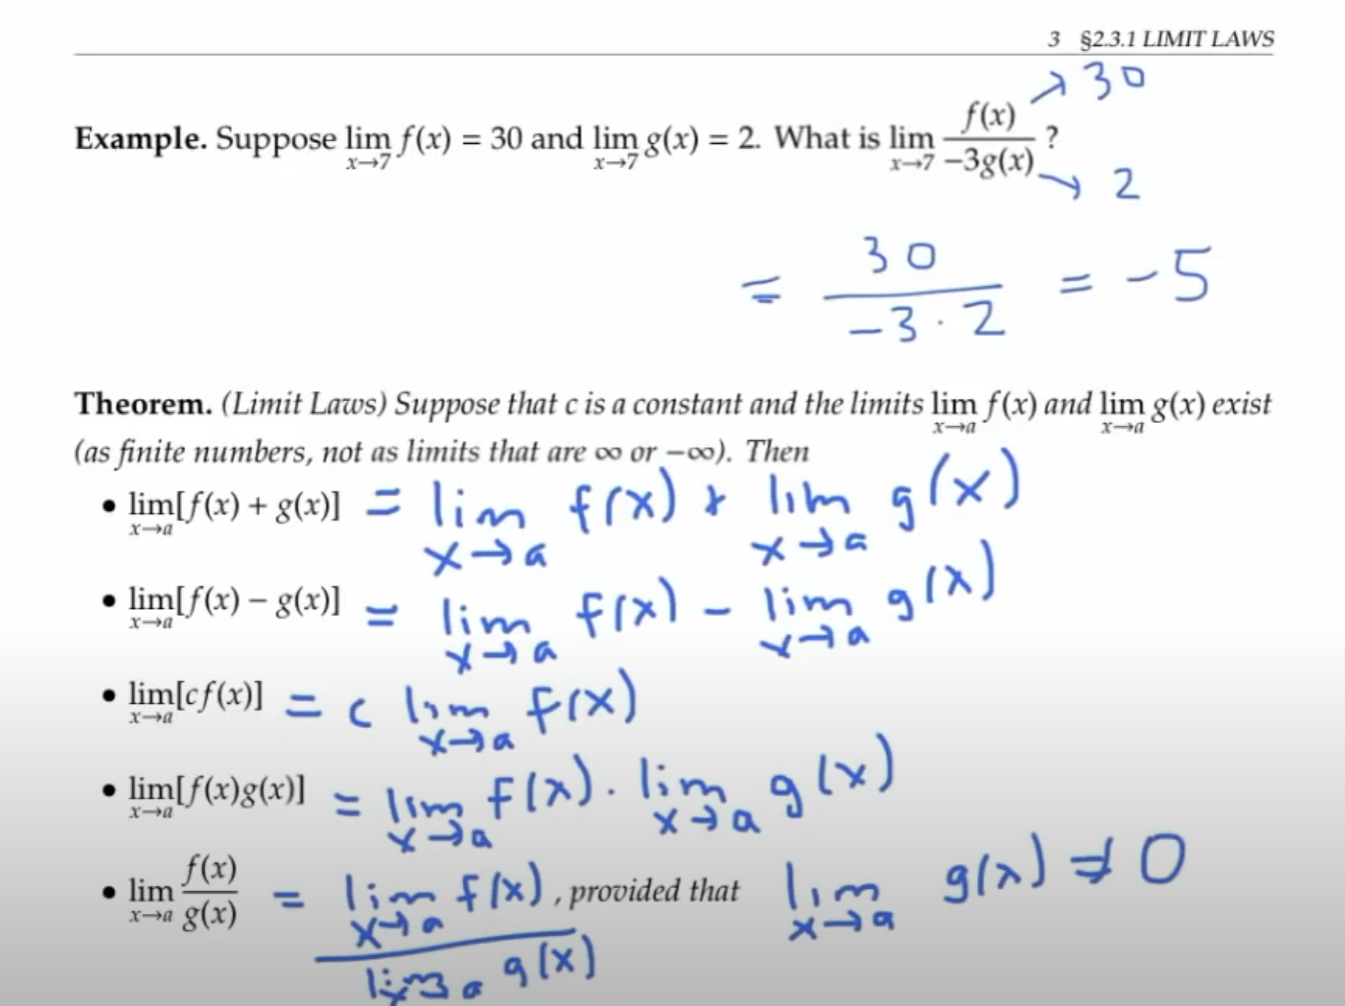 3 §2.3.1 LIMIT LAWS
Example. Suppose lim x→7 f(x) = 30 and lim x→7 g(x) = 2. What is lim x→7 f(x)/−3g(x) ?
→ 30
→ 2
= 30/−3·2 = −5
Theorem. (Limit Laws) Suppose that c is a constant and the limits lim x→a f(x) and lim x→a g(x) exist
(as finite numbers, not as limits that are ∞ or −∞). Then
• lim x→a [f(x) + g(x)] = lim x→a f(x) + lim x→a g(x)
• lim x→a [f(x) − g(x)] = lim x→a f(x) − lim x→a g(x)
• lim x→a [cf(x)] = c lim x→a f(x)
• lim x→a [f(x)g(x)] = lim x→a f(x) · lim x→a g(x)
• lim x→a f(x)/g(x) = lim x→a f(x)/lim x→a g(x), provided that lim x→a g(x) ≠ 0